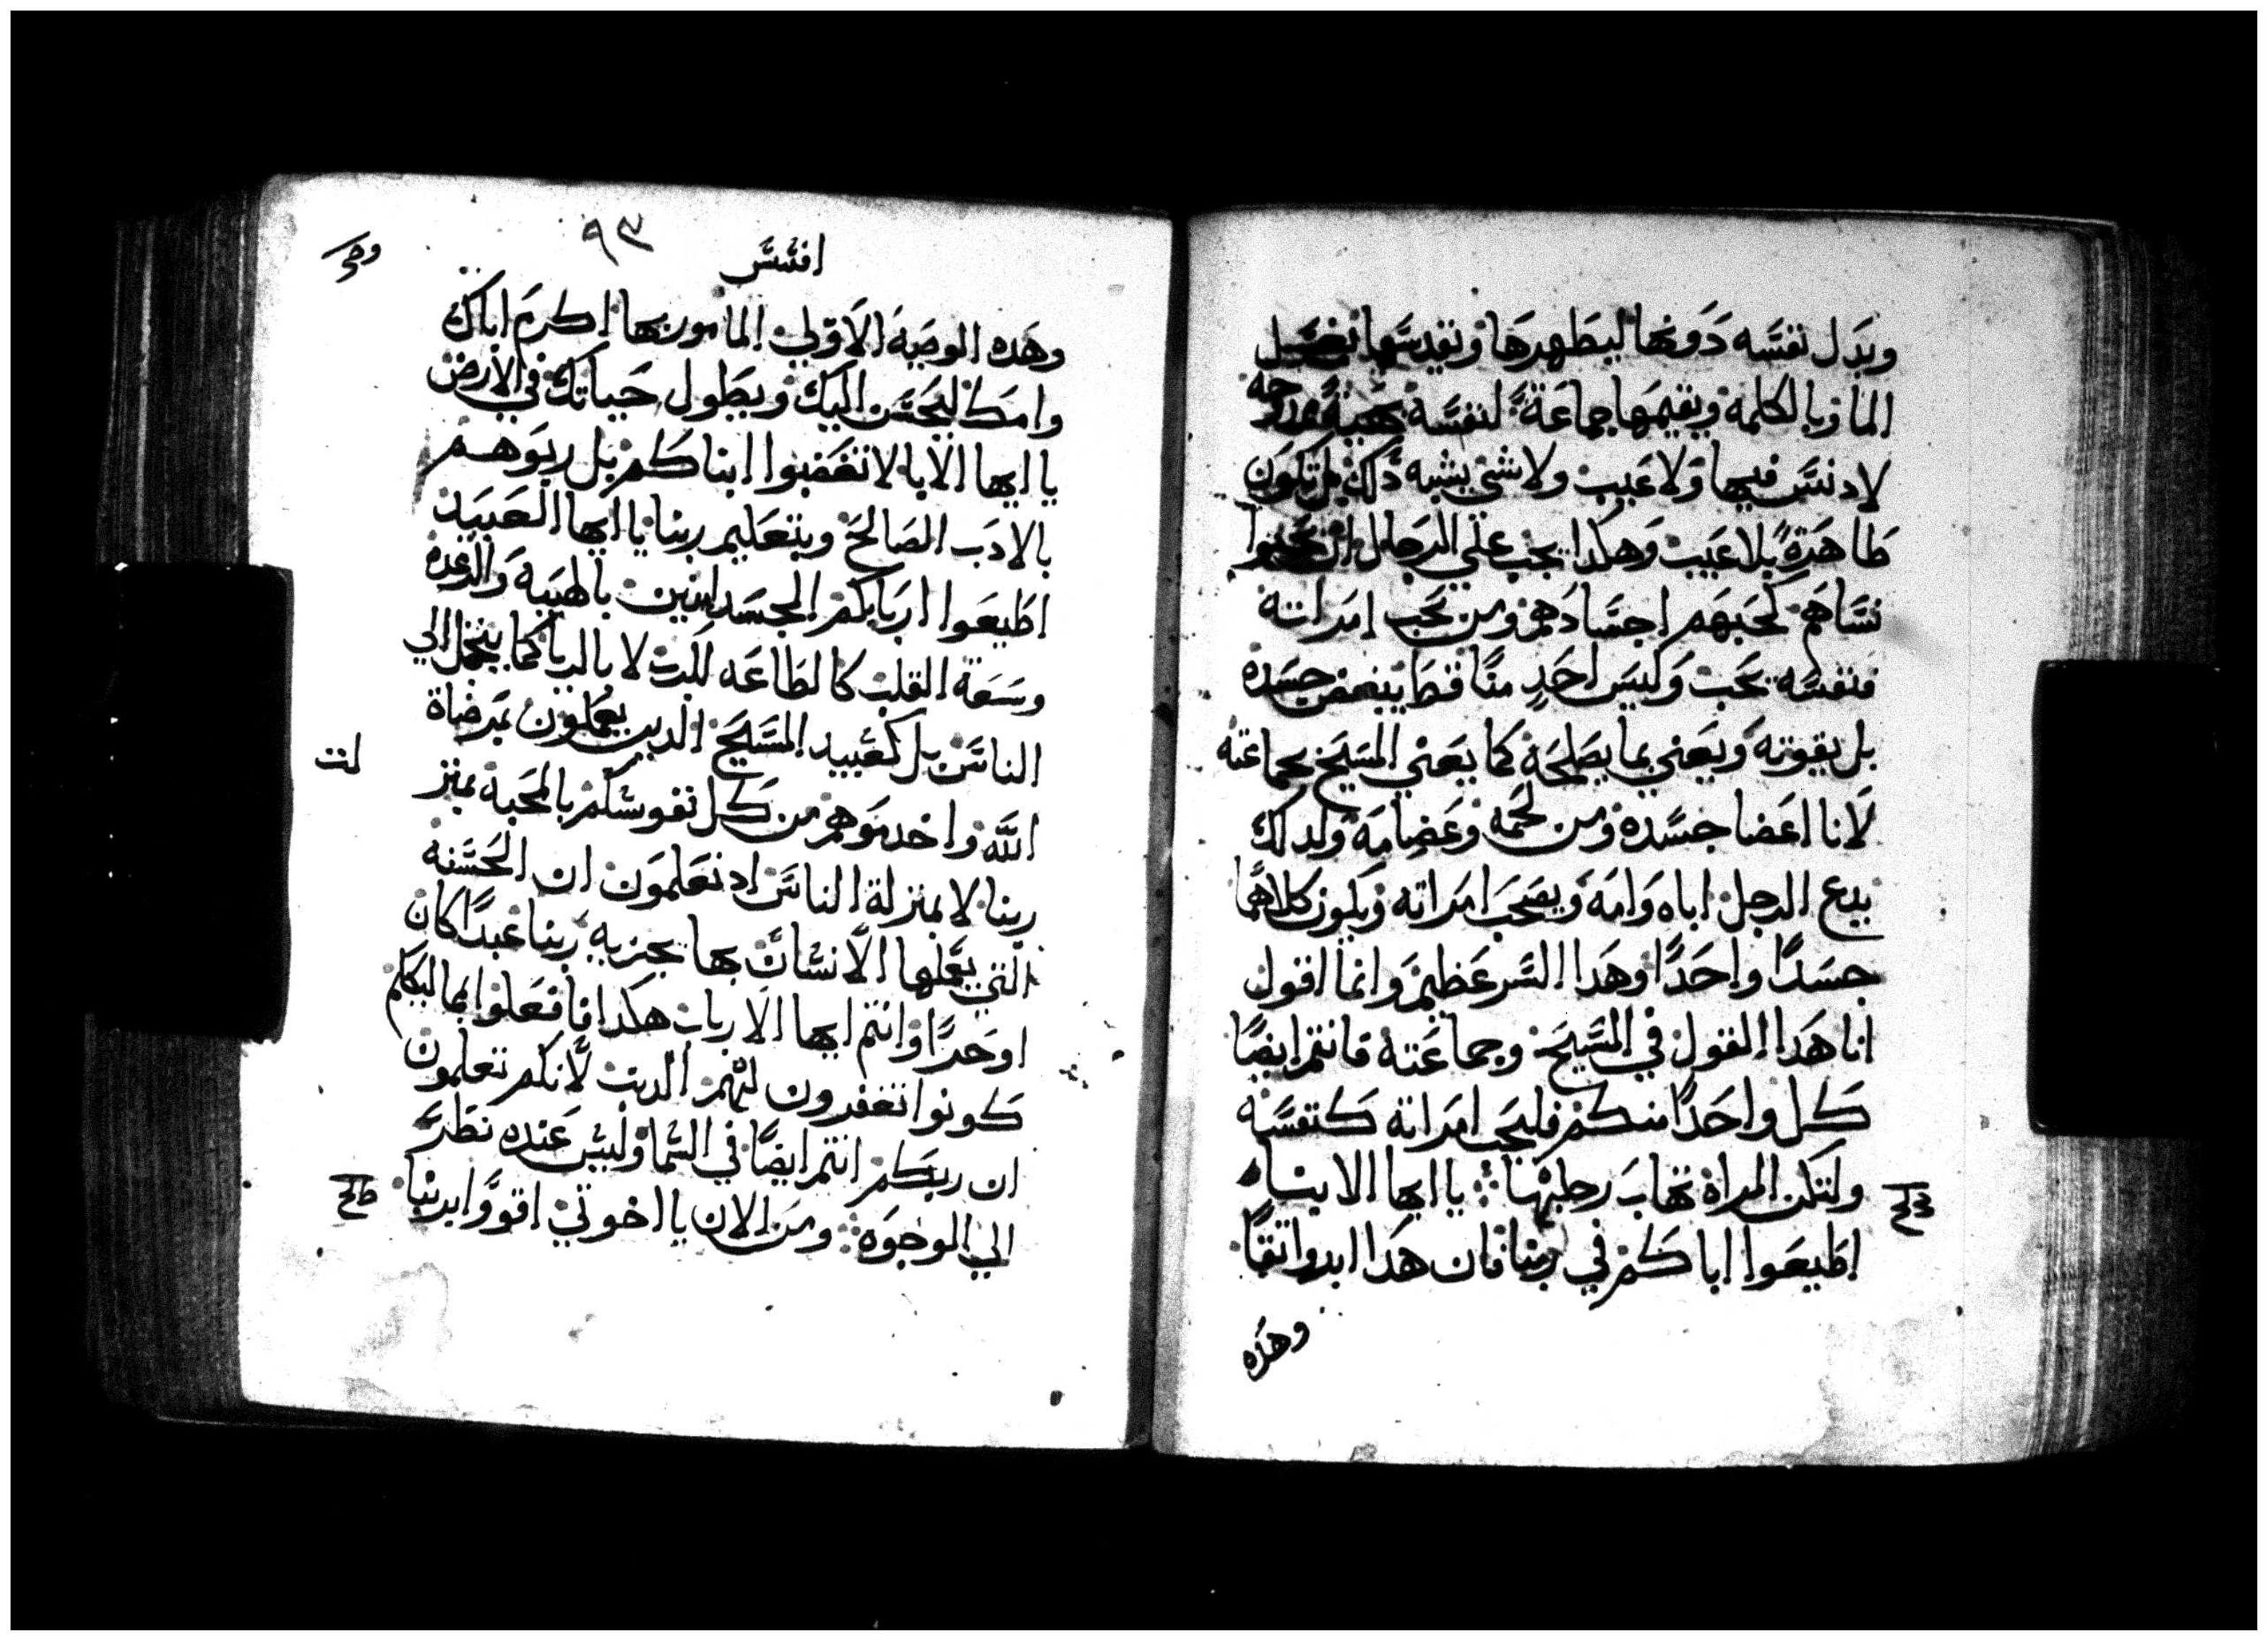 وبدل نفسه دونها ليطهرها ويقدسها بغسل
الما وبالكلمه ويقيمها جماعة لنفسه بهية ممدوحه
لا دنس فيها ولا عيب ولا شي يشبه ذلك بل تكون
طاهرة بلا عيب وهكذا يجب علي الرجال ان يحبوا
نساهم كحبهم اجسادهم ومن يحب امراته
فنفسه يحب وليس احد منا قط يبغض جسده
بل يقوته ويعني بما يصلحه كما يعني المسيح بجماعته
لانا اعضا جسده ومن لحمه وعضامه ولدلك
يدع الرجل اباه وامه ويصحب امراته ويكون كلاهما
جسدا واحدا وهدا السر عظيم وانما اقول
انا هدا القول في المسيح وجماعته فانتم ايضا
كل واحدا منكم فليحب امراته كنفسه
ولتكن المراة تهاب رجلها يا ايها الابنا
اطيعوا اباكم في ربنا فان هدا ابدوا تقا
وهذه
٩٣
افسس
وهده الوصية الاولي المامور بها اكرم اباك
وامك ليحسن اليك ويطول حياتك في الارض
يا ايها الابا لا تغضبوا ابناكم بل ربوهم
بالادب الصالح وبتعليم ربنا يا ايها العبيد
اطيعوا اربابكم الجسدانيين بالهيبه والرعده
وسعة القلب كالطاعه للرب لا بالريا كما يتجمل الي
الناس بل كعبيد المسيح الدين يعملون بمرضاة
الله واخدموهم من كل نفوسكم بالمحبه بمنز
لت
ربنا لا بمنزلة الناس اد تعلمون ان الحسنه
التي يعملها الانسان بها يجزيه ربنا عبدا كان
او حرا وانتم ايها الارباب هكدا فافعلوا بمماليككم
كونوا تغفرون لهم الدنب لانكم تعلمون
ان ربكم انتم ايضا في السما وليس عنده نظر
الي الوجوه ومن الان يا اخوتي اقووا بربنا